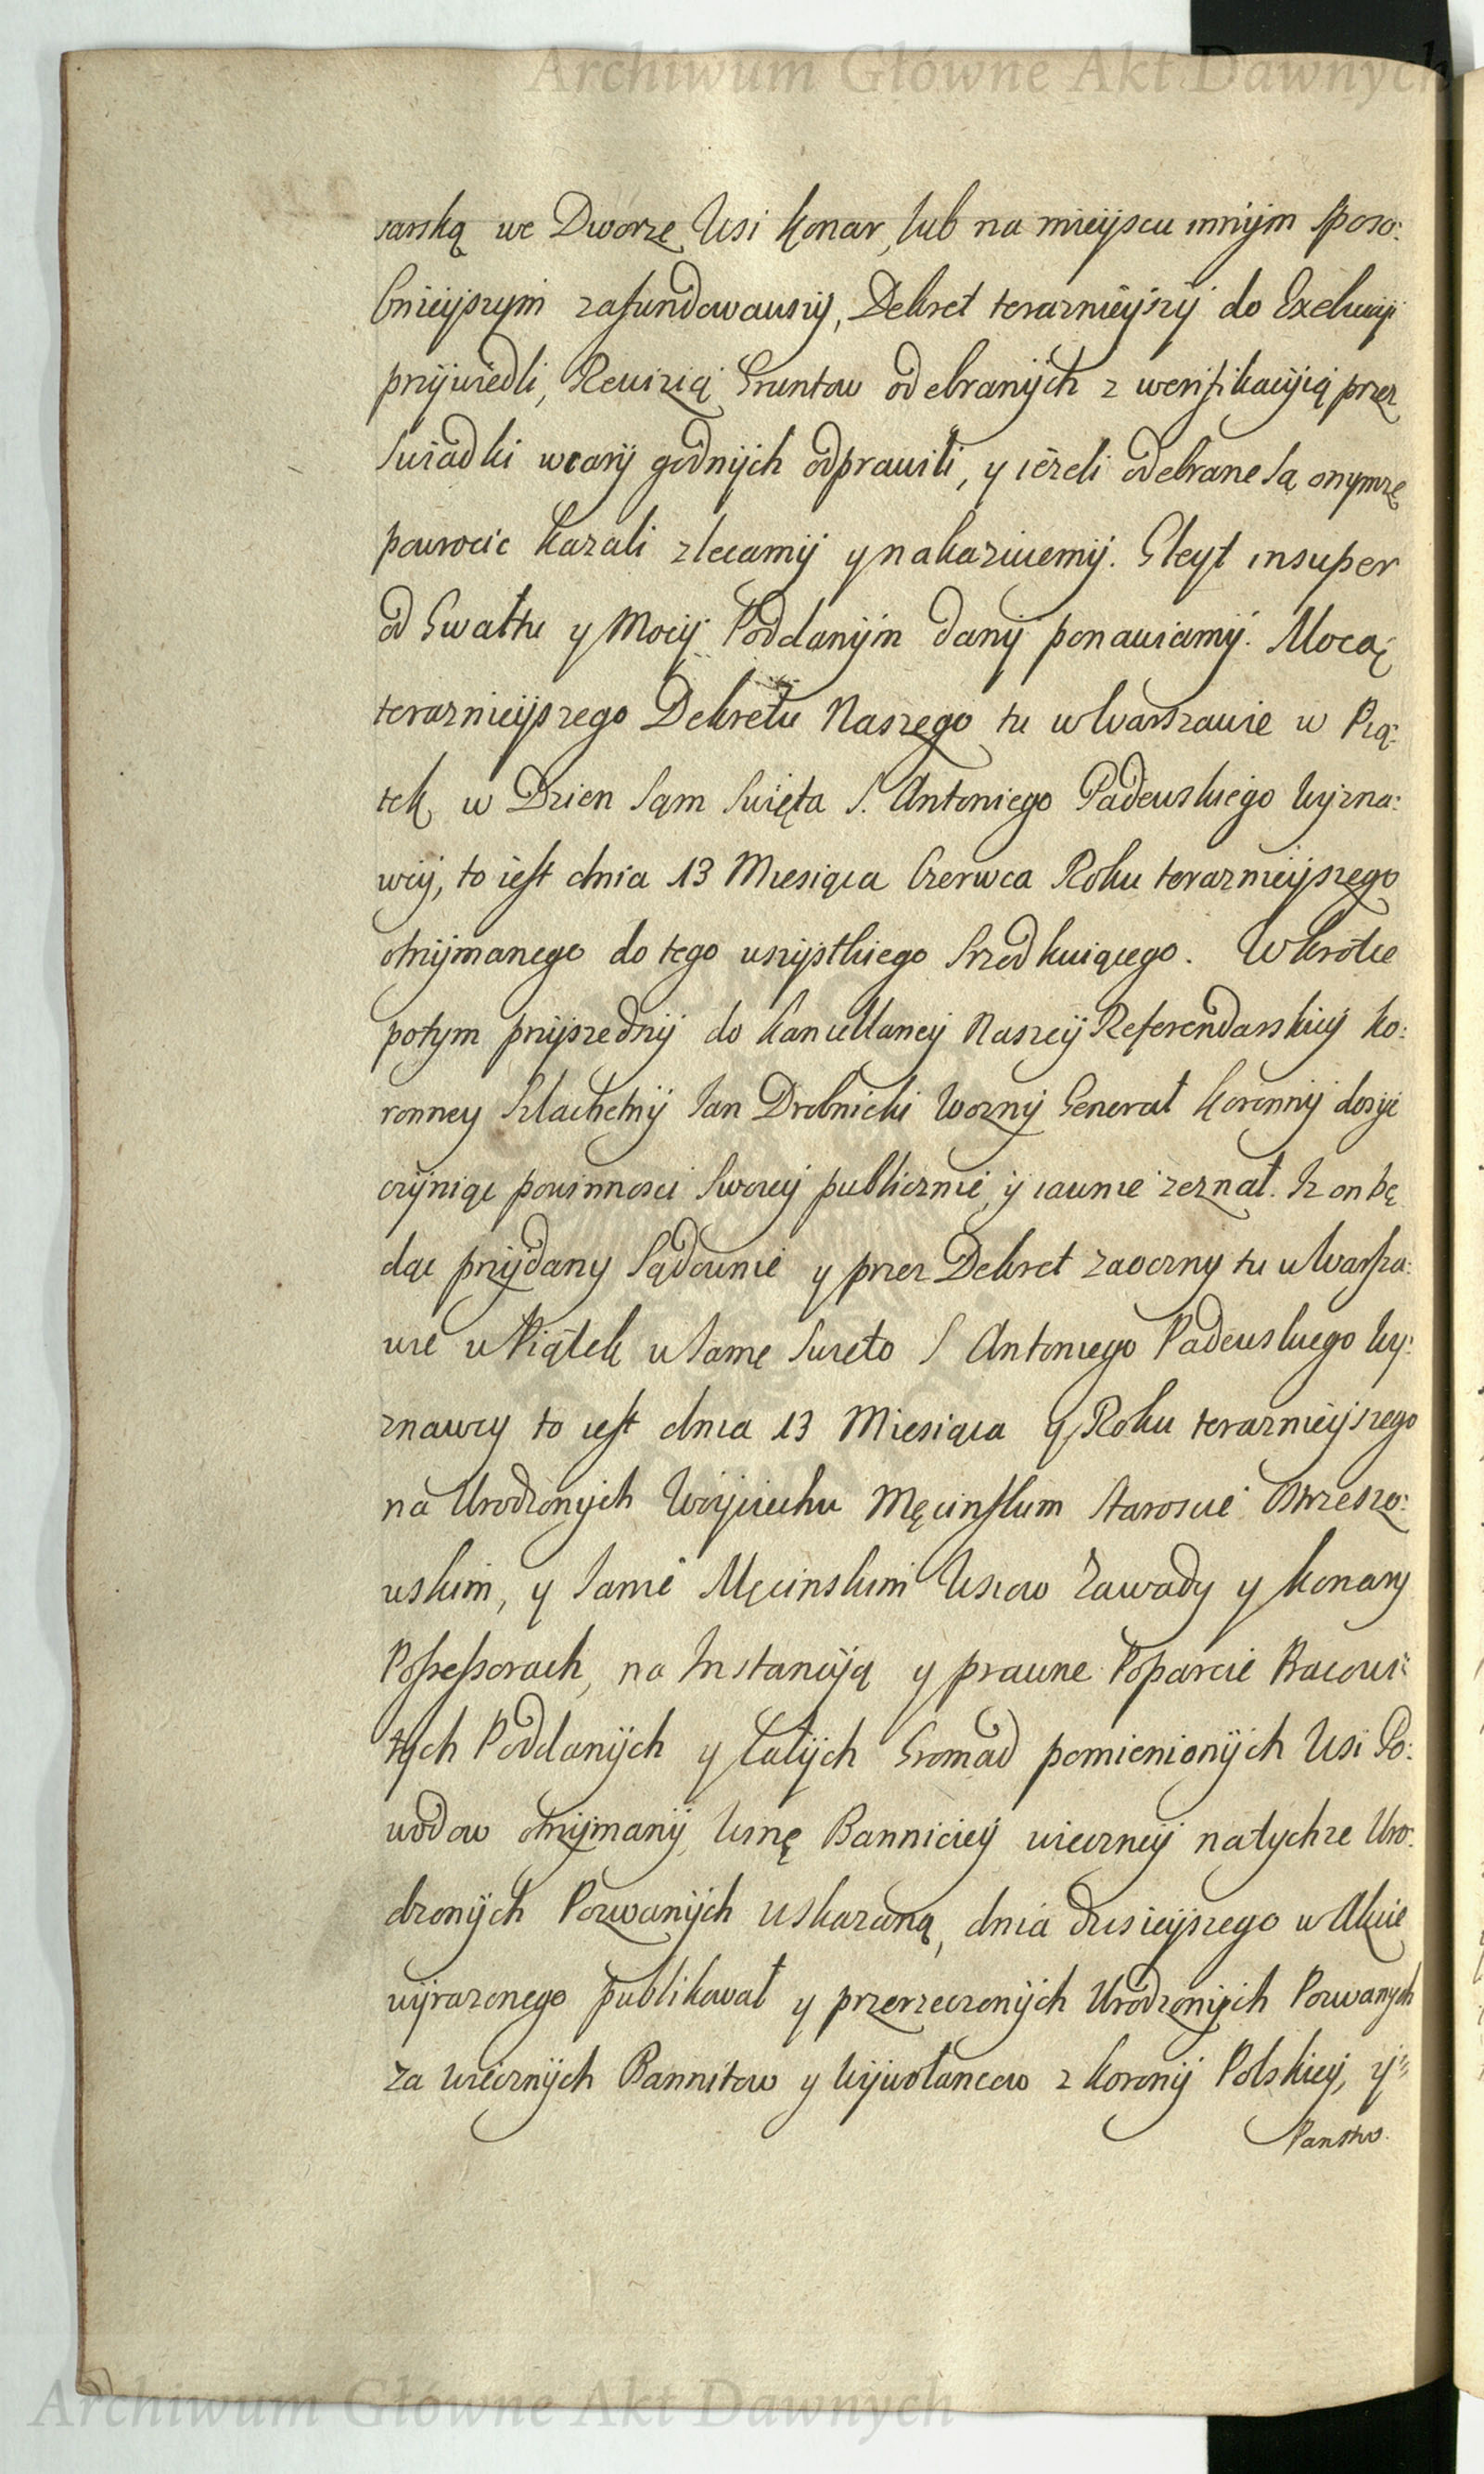 Archiwum Główne Akt Dawnych
sarską we Dworze Wsi Konar, lub na mieyscu innym sposo:
bnieyszym zafundowawszy, Dekret teraznieyszy do Exekucyi
przywiedli, Rewizią Gruntow odebranych z weryfikacyią przez
Swiadki wiary godnych odprawili, y ieżeli odebrane są onymże
powrocic kazali zlecamy y nakazuiemy. Gleyt insuper
od Gwałtu y Mocy Poddanym dany ponawiamy. Mocą
teraznieyszego Dekretu Naszego tu w Warszawie w Pią:
tek w Dzien Sąm Swięta S. Antoniego Padewskiego Wyzna:
wcy, to iest dnia 13 Miesiąca Czerwca Roku teraznieyszego
otrzymanego do tego wszystkiego Srzodkuiącego. Wkrotce
potym przyszedszy do Kancellaryi Naszey Referendarskiey Ko:
ronney Szlachetny Jan Drobnicki Wozny Generał Koronny dosyc
czyniąc powinnosci Swoiey publicznie y iawnie zeznał. Iz on bę
dąc przydany Sądownie y przez Dekret zaoczny tu w Warsza:
wie w Piątek w Same Swięto S Antoniego Padewskiego Wy:
znawcy to iest dnia 13 Miesiąca y Roku teraznieyszego
na Urodzonych Woyciechu Męcinskim Staroscie Ostrzeszo:
wskim, y Samie Męcinskim Wsiow Zawady y Konary
Possessorach, na Instancyią y prawne Poparcie Pracowi:
tych Poddanych y Całych Gromad pomienionych Wsi Po:
wodow otrzymany, Winę Banniciey wieczney na tychze Uro:
dzonych Pozwanych wskazaną, dnia dzisieyszego w Akcie
wyrazonego publikował y przerzeczonych Urodzonych Pozwanych
za wiecznych Bannitow y Wywołancow z Korony Polskiey, y
Panstw.
Archiwum Główne Akt Dawnych